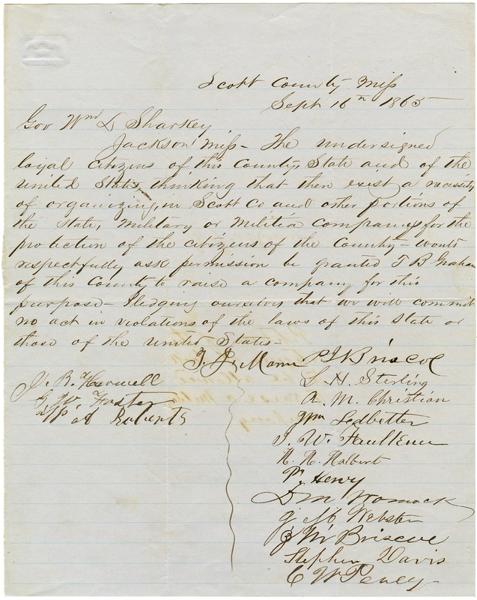 Scott County Miss
Sept 16th 1865
Gov Wm L Sharkey
Jackson Miss - The undersigned
loyal citizens of this County, State and of the
United States, thinking that there exist a necessity
of organizing, in Scott Co and other portions of
the State, Military or Militia companys for the
protection of the citizens of the County - would
respectfully ask permission be granted T B Graham
of this County to raise a company for this
purpose - Pledging ourselves that we will commit
no act in violations of the laws of this State or
those of the United States -
Mann
P J Briscoe
J. R. Harwell
L. H. Sterling
G W Foster
A. M. Christian
A Roberts
Wm Ledbetter
J. W. Faulkner
H. H. Halbert
Henry
D M Womack
J M Webster
J W Briscoe
Stephen Davis
C W Pency